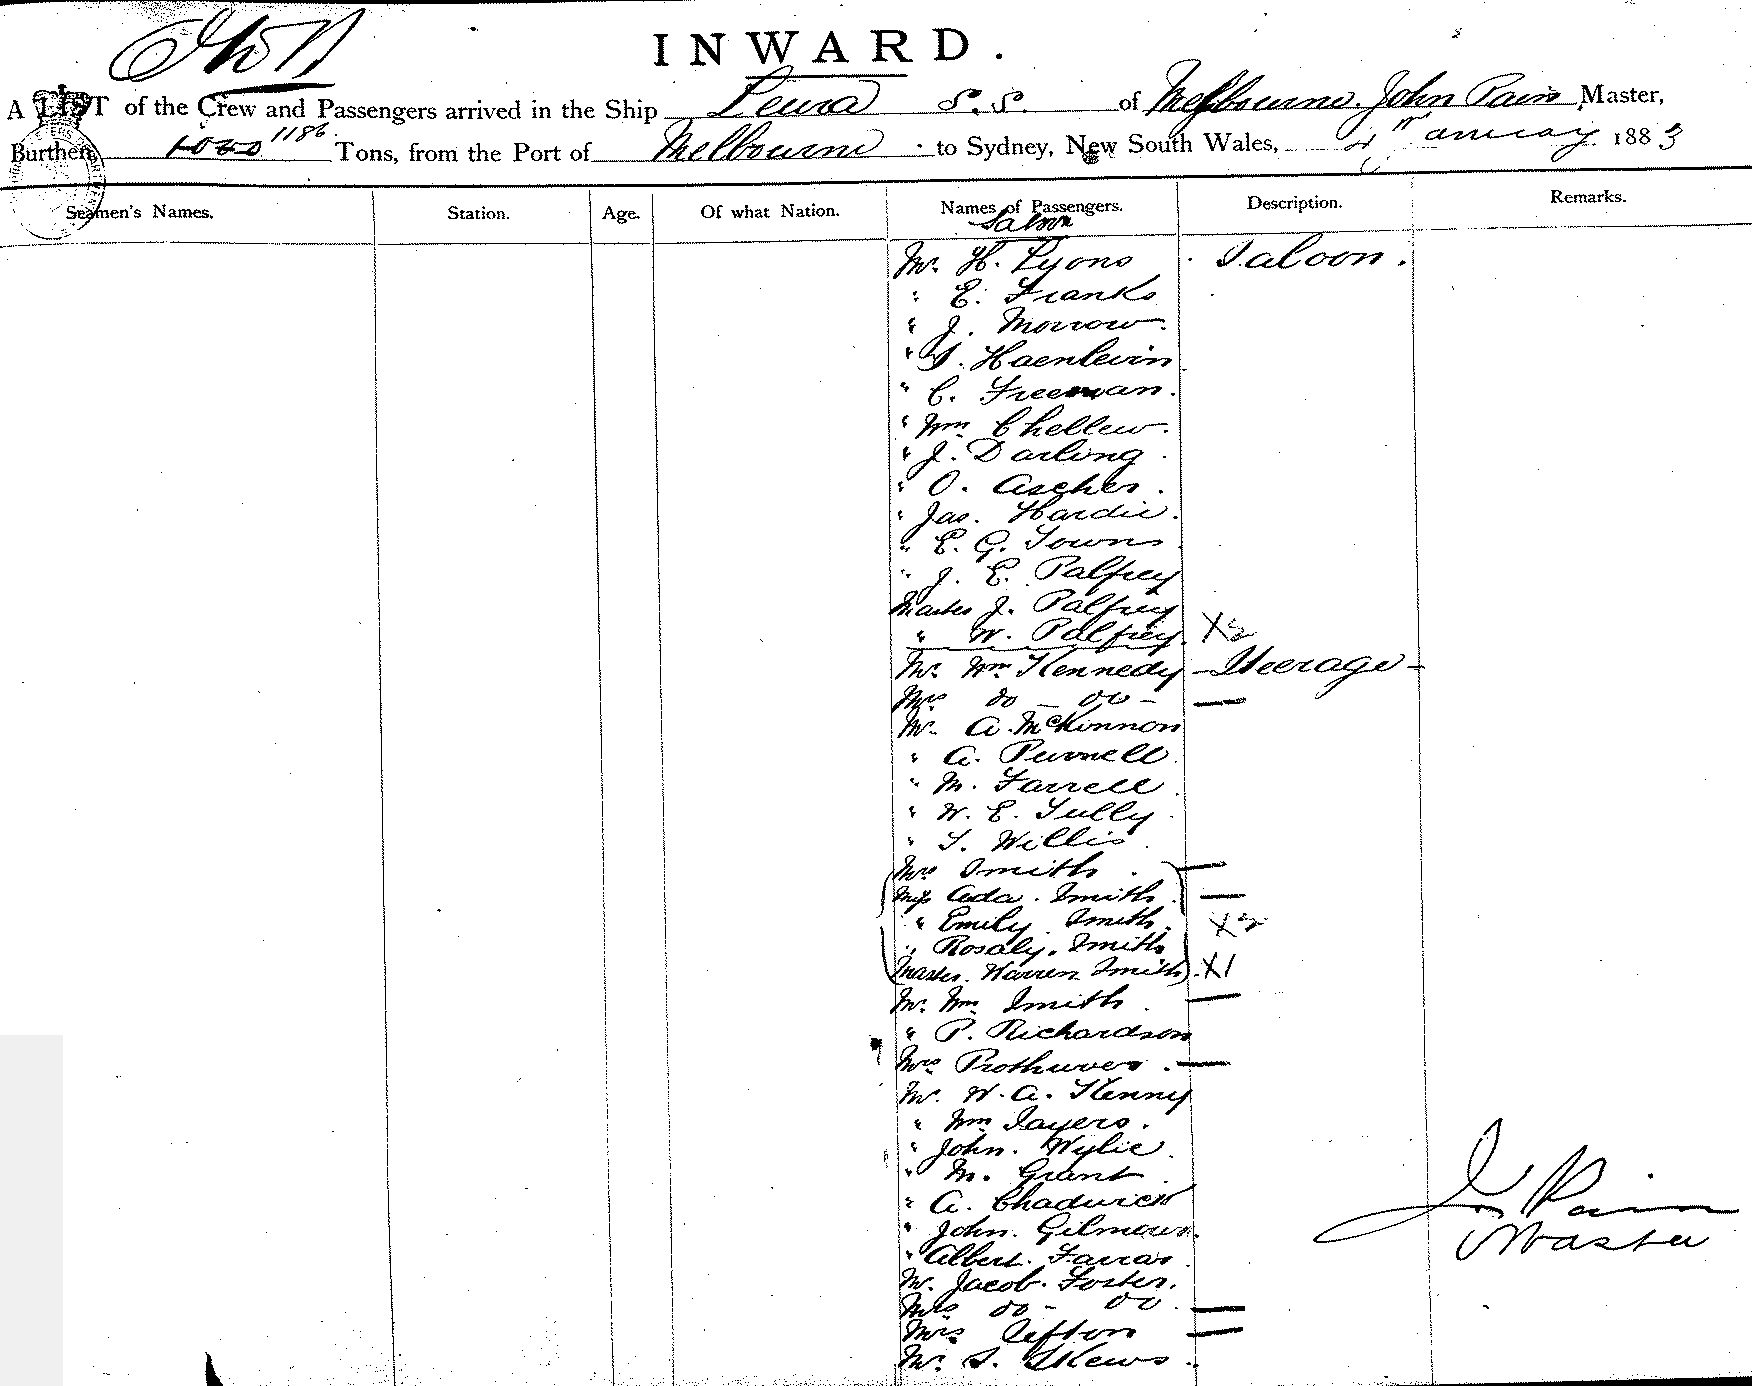 INWARD.
A LIST of the Crew and Passengers arrived in the Ship Leura S.S. of Melbourne John Pain Master,
Burthen 1000 1186 Tons, from the Port of Melbourne to Sydney, New South Wales, 4th January 1883
Seamen's Names. Station. Age. Of what Nation. Names of Passengers. Description. Remarks.
Saloon
Mr. H. Lyons Saloon.
" E. Franks
" J. Morrow
" S. Haenlevin
" C. Freeman.
" Wm Chellew.
" J. Darling
" O. Ascher.
" Jas. Hardie.
" E. G. Towns
" J. E. Palfrey
Master J. Palfrey
" W. Palfrey X2
Mr. Wm Kennedy - Steerage -
Mrs do - do - —
Mr. A. McKinnon
" A. Purnell
" M. Farrell
" W. E. Tully
" T. Willis
Mrs Smith —
Miss Ada. Smith —
" Emily. Smith. X2
" Rosaly. Smith
Master. Warren Smith X1
Mr. Wm. Smith —
" P. Richardson
Mrs —
Mr. W. A. Kenny
" Wm Sayers.
" John. Wylie
" M. Grant
" A. Chadwick
" John. Gilmour.
" Albert. Farrar
Mr. Jacob. Foster.
Mrs do - do —
Mrs Lefton —
Mr. S. Skews.
Jn Pain
Master